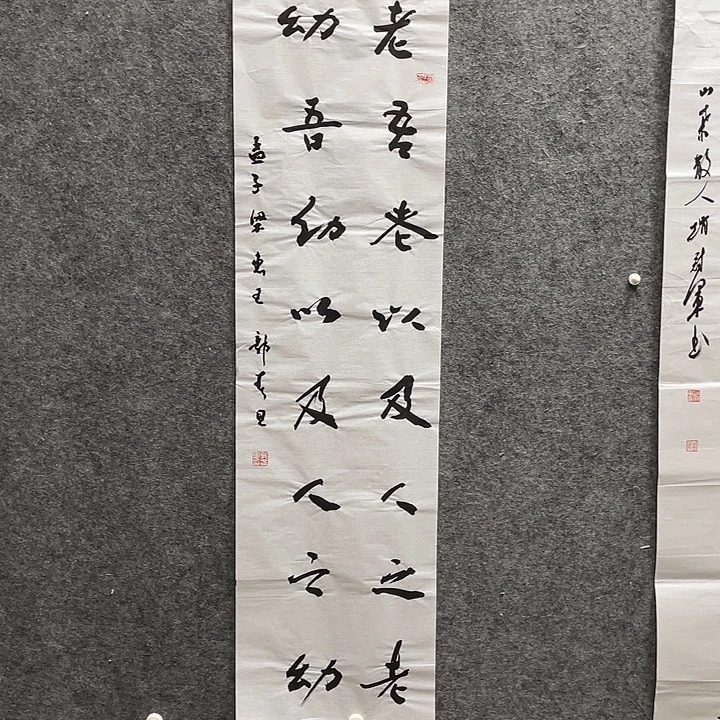 老吾老以及人之老
幼吾幼以及人之幼
孟子梁惠王 郭春
山东散人 军书